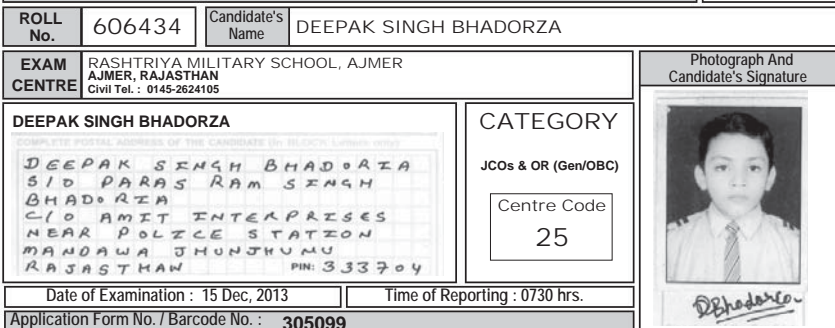 ROLL No. 606434 Candidate's Name DEEPAK SINGH BHADORZA
EXAM CENTRE RASHTRIYA MILITARY SCHOOL, AJMER
AJMER, RAJASTHAN
Civil Tel. : 0145-2624105
Photograph And
Candidate's Signature
DEEPAK SINGH BHADORZA
COMPLETE POSTAL ADDRESS OF THE CANDIDATE (In BLOCK Letters only)
DEEPAK SINGH BHADORIA
S/O PARAS RAM SINGH
BHADORIA
C/O AMIT INTERPRISES
NEAR POLICE STATION
MANDAWA JHUNJHUNU
RAJASTHAN PIN: 333704
CATEGORY
JCOs & OR (Gen/OBC)
Centre Code
25
Date of Examination : 15 Dec, 2013 Time of Reporting : 0730 hrs.
Application Form No. / Barcode No. : 305099